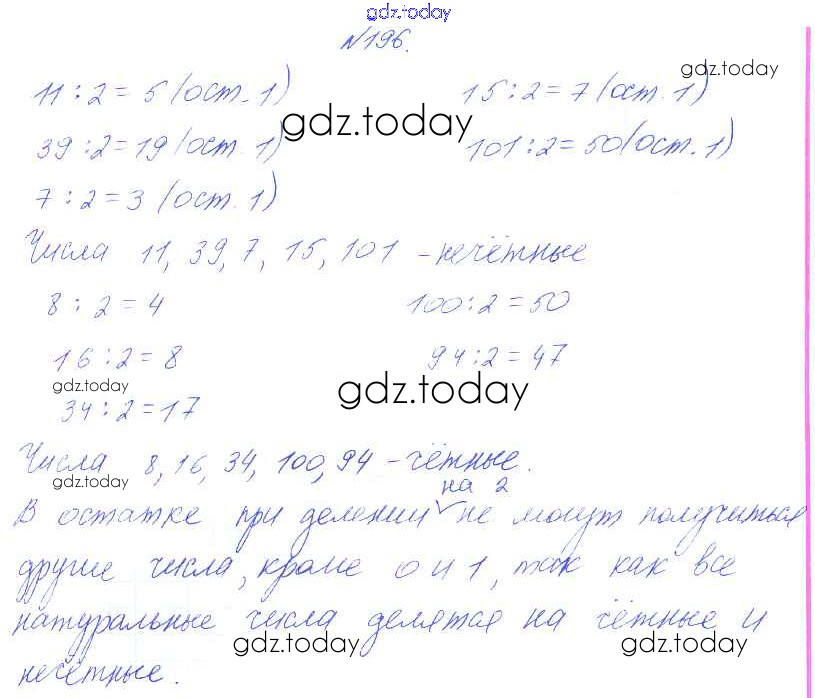 gdz.today
№196.
gdz.today
11 : 2 = 5 (ост. 1) 15 : 2 = 7 (ост. 1)
gdz.today
39 : 2 = 19 (ост. 1) 101 : 2 = 50 (ост. 1)
7 : 2 = 3 (ост. 1)
Числа 11, 39, 7, 15, 101 - нечётные
8 : 2 = 4 100 : 2 = 50
16 : 2 = 8 94 : 2 = 47
gdz.today gdz.today
34 : 2 = 17
Числа 8, 16, 34, 100, 94 - чётные.
gdz.today
на 2
В остатке при делении не могут получиться
другие числа, кроме 0 и 1, так как все
натуральные числа делятся на чётные и
gdz.today gdz.today
нечётные.